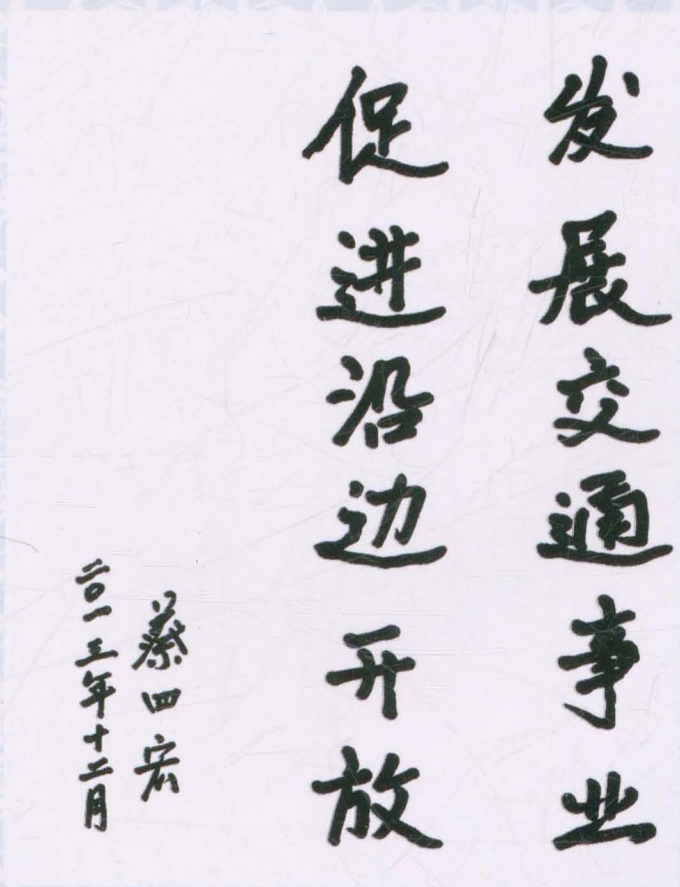 发展交通事业
促进沿边开放
蔡四宏
二〇一三年十二月